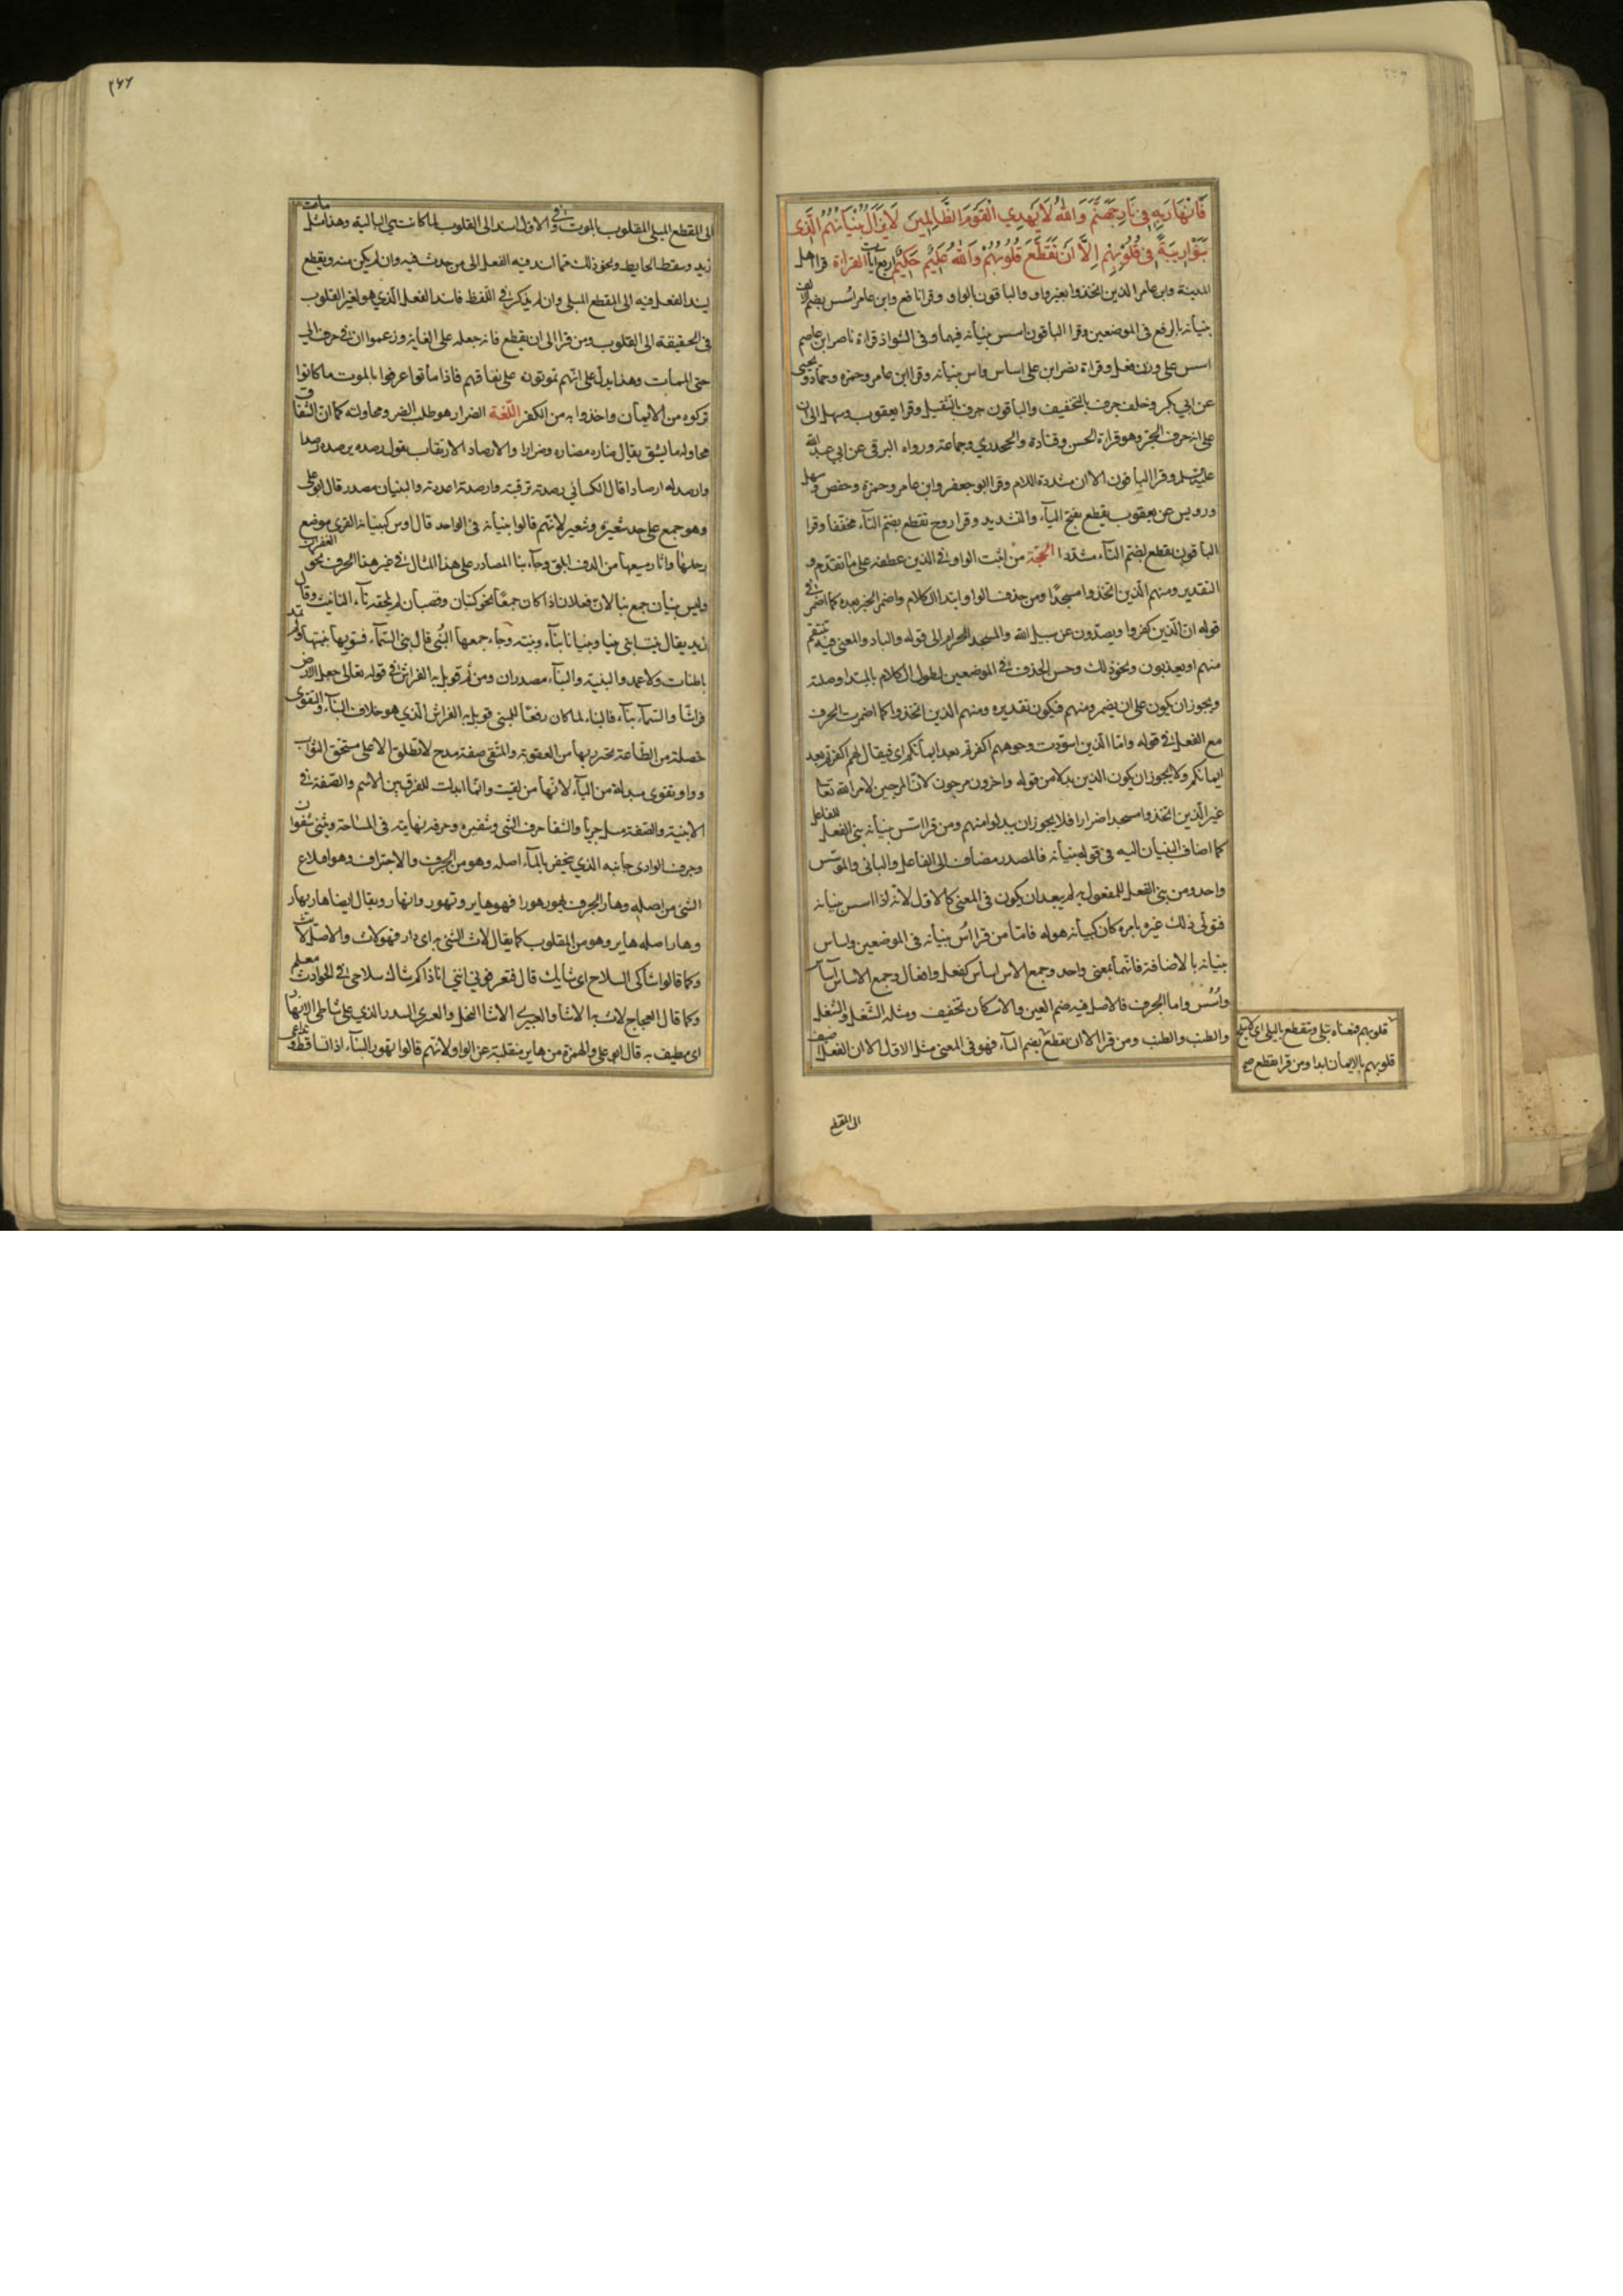 فَانْهَارَ بِهِ فِي نَارِ جَهَنَّمَ وَاللّٰهُ لَا يَهْدِي الْقَوْمَ الظَّالِمِينَ لَا يَزَالُ بُنْيَانُهُمُ الَّذِي
بَنَوْا رِيبَةً فِي قُلُوبِهِمْ اِلَّا اَنْ تَقَطَّعَ قُلُوبُهُمْ وَاللّٰهُ عَلِيمٌ حَكِيمٌ اربع ايات القراءة قرا اهل
المدينة وابن عامر الذين اتخذوا بغير واو والباقون بالواو وقرا نافع وابن عامر اسس بضم الالف
بنيانه بالرفع في الموضعين وقرا الباقون اسس بنيانه فيهما وفي الشواذ قراءة ناصر ابن عاصم
اسس على وزن فعل وقراءة نصر ابن على اساس واس بنيانه وقرا ابن عامر وحمزه وحماد ويحيى
عن ابي بكر وخلف جرف بالتخفيف والباقون جرف بالتثقيل وقرا يعقوب وسهل الى ان
على انه حرف الجر وهو قراءة الحسن وقتادة والجحدري وجماعة ورواه البرقي عن ابي عبد الله
عليه السلم وقرا الباقون الا ان مشددة اللام وقرا ابو جعفر وابن عامر وحمزة وحفص وسهل
ورويس عن يعقوب يقطع بفتح التاء والتشديد وقرا روح تقطع بضم التاء مخففا وقرا
الباقون يقطع بضم التاء مشددا الحجة من اثبت الواو في الذين عطفه على ما تقدم و
التقدير ومنهم الذين اتخذوا مسجدًا ومن حذف الواو ابتدا الكلام واضمر الخبر بعده كما اضمر في
قوله ان الذين كفروا ويصدون عن سبيل الله والمسجد الحرام الى قوله والباد والمعنى فيه ننتقم
منهم او يعذبون ونحو ذلك وحسن الحذف في الموضعين لطول الكلام بالمبتدا وصلته
ويجوز ان يكون على ان يضمر ومنهم فيكون تقديره ومنهم الذين اتخذوا كما اضمرت الحرف
مع الفعل في قوله واما الذين اسودت وجوههم اكفرتم بعد ايمانكم اى فيقال لهم اكفرتم بعد
ايمانكم ولا يجوز ان يكون الذين بدلا من قوله واخرون مرجون لان المرجين لامر الله تعا
غير الذين اتخذوا مسجدا ضرارا فلا يجوز ان يبدلوا منهم ومن قرا اسس بنيانه بنى الفعل للفاعل
كما اضاف البنيان اليه في قوله بنيانه فالمصدر مضاف الى الفاعل والبانى والمؤسس
واحد ومن بنى الفعل للمفعول به لم يبعد ان يكون في المعنى كالاول لانه اذا اسس بنيانه
فتولى ذلك غيره بامره كان كبيانه هو له فاما من قرا اس بنيانه في الموضعين واساس
بنيانه بالاضافة فانهما بمعنى واحد وجمع الاس اساس كقفل واقفال وجمع الاساس آساس
واُسُس واما الجرف فالاصل فيه ضم العين والاسكان تخفيف ومثله الشغل والشغل
والطنب والطنب ومن قرا الا ان تقطع بضم التاء فهو في المعنى مثل الاول الا ان الفعل اضيف
قلوبهم فمعناه تبلى وتتقطع بالبلى اى لا تثلج
قلوبهم بالايمان ابدا ومن قرا يقطع صح
الى المقطع
٢٦٦
الى المقطع المبلى للقلوب بالموت وفي الاول اسند الى القلوب لما كانت هي البالية وهذا مثل مات
زيد وسقط الحايط ونحو ذلك مما اسند فيه الفعل الى من حدث فيه وان لم يكن منه ويقطع
يسند الفعل فيه الى المقطع المبلى وان لم يذكر في اللفظ فاسند الفعل الذي هو لغير القلوب
في الحقيقة الى القلوب ومن قرا الى ان يقطع فانه جعله على الغاية وزعموا ان في حرف ابي
حتى الممات وهذا يدل على انهم يموتون على نفاقهم فاذا ماتوا عرفوا بالموت ما كانوا
تركوه من الايمان واخذوا به من الكفر اللغة الضرار هو طلب الضر ومحاولته كما ان الشقاق
محاولة ما يشق يقال ضاره مضاره وضرارا والارصاد الارتقاب يقول رصده يرصده رصدا
وارصد له ارصادا قال الكسائي رصدته ترقبته وارصدته اعددته والبنيان مصدر قال ابو على
وهو جمع على حد شعيرة وشعير لانهم قالوا بنيانه في الواحد قال اوس كبنيانة القرى موضع
رحلها واثار نسعيها من الدف ابلق وجاء بنا المصادر على هذا المثال في غير هذا الحرف نحو الغفران
وليس بنيان جمع بنا لان فعلانا اذا كان جمعًا نحو كثبان وقضبان لم يلحقه تاء التانيث وقال
زيد يقال بنيت ابنى بنيا وبنيانا بناء وبنية وجاء جمعها البنى قال بنى السماء فسويها بنيتها ولم تمد
باطناب ولا عمد والبنية والبناء مصدران ومن ثم قوبل به الفراش في قوله تعالى جعل الارض
فراشًا والسماء بناء فالبناء لما كان رفعًا للمبنى قوبل به الفراش الذي هو خلاف البناء والتقوى
خصلة من الطاعة يحترز بها من العقوبة والمتقى صفة مدح لا تطلق الا على مستحق الثواب
وواو تقوى مبدلة من الياء لانها من تقيت وانما ابدلت للفرق بين الاسم والصفة في
الابنية والصفة مثل خزيا والشفا حرف الشى وشفيره وحرفه نهايته في المساحة ويثنى شفوان
وجرف الوادى جانبه الذي ينحفر بالماء اصله وهو من الجرف والاجتراف وهو اقلاع
الشى من اصله وهار الجرف يهور هورا فهو هاير وتهور وانهار ويقال ايضا هار يهار
وهار اصله هاير وهو من المقلوب كما يقال لاث الشى به اى دار فهو لاث والاصل لائث
وكما قالوا شاكى السلاح اى شايك قال فتعرفوني انني انا ذاكم شاك سلاحى في الحوادث معلم
وكما قال العجاج لاث به الاشا والعبرى الاشا النخل والعبرى السدر الذي على شاطى الانهار
اى مطيف به قال ابو على والهمزة من هاير منقلبة عن الواو لانهم قالوا تهور البناء اذا تساقط وتداعى